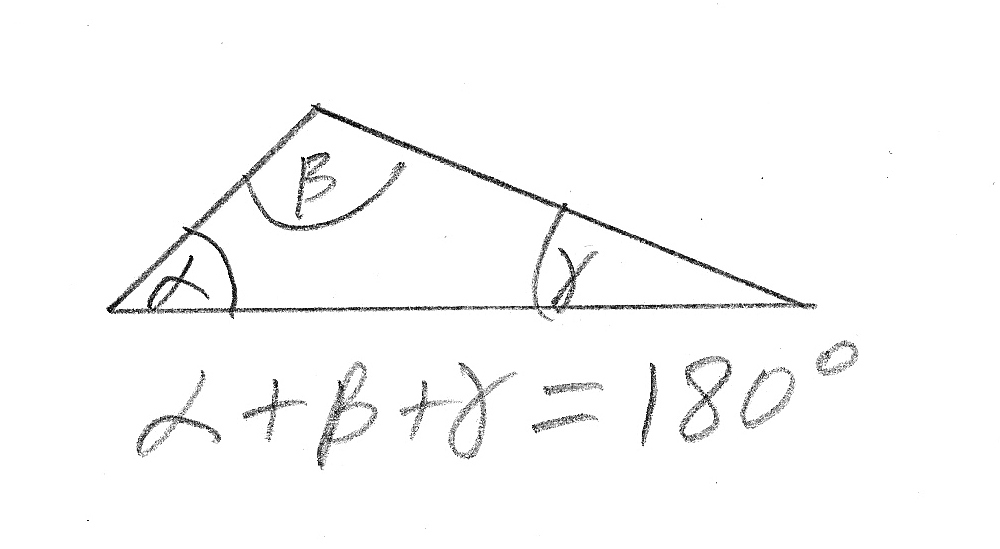 β
α
γ
α+β+γ=180°